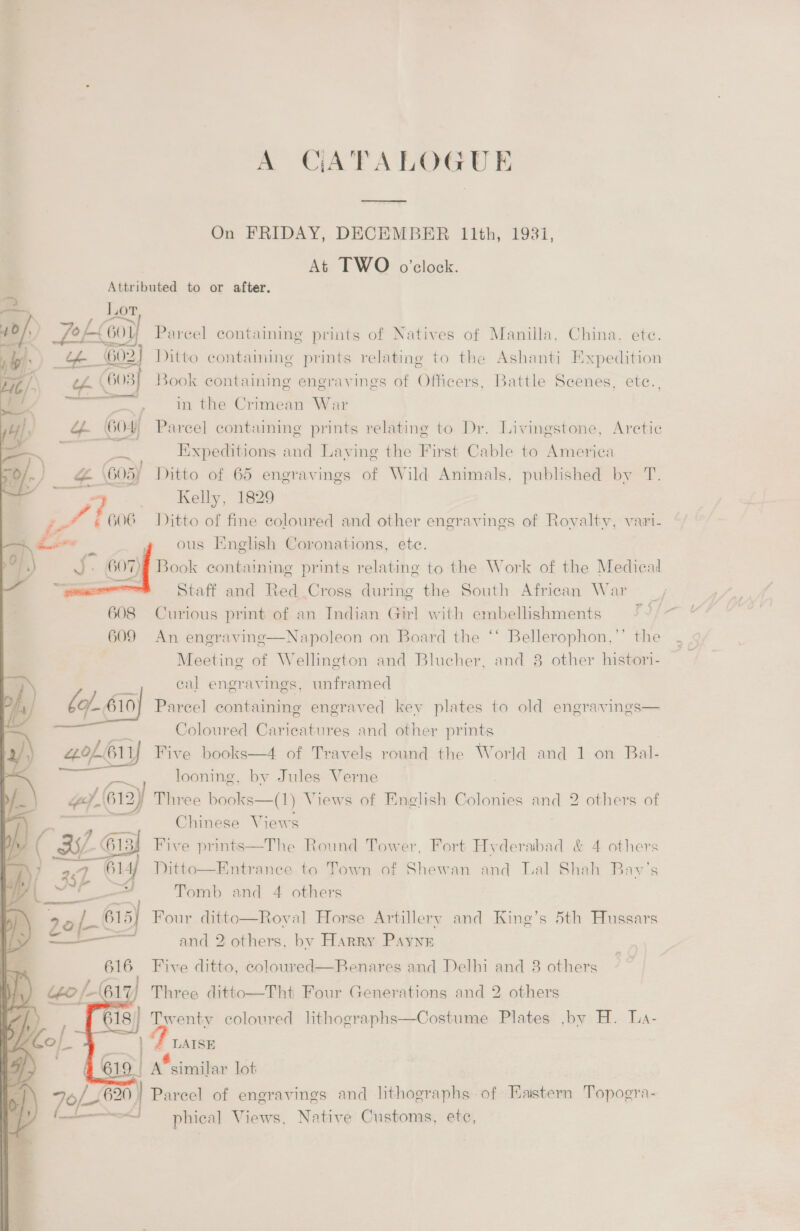 A CATALOGUE
On FRIDAY, DECEMBER 11th, 1931,
At TWO o'clock.
Attributed to or after.
Lot
70/- 601 Parcel containing prints of Natives of Manilla, China, etc.
602 Ditto containing prints relating to the Ashanti Expedition
603 Book containing engravings of Officers, Battle Scenes, etc.,
in the Crimean War
604 Parcel containing prints relating to Dr. Livingstone, Arctic
Expeditions and Laying the First Cable to America
605 Ditto of 65 engravings of Wild Animals, published by T.
Kelly, 1829
606 Ditto of fine coloured and other engravings of Royalty, vari-
ous English Coronations, etc.
607 Book containing prints relating to the Work of the Medical
Staff and Red Cross during the South African War
608 Curious print of an Indian Girl with embellishments
609 An engraving—Napoleon on Board the “ Bellerophon,” the
Meeting of Wellington and Blucher, and 3 other histori-
cal engravings, unframed
610 Parcel containing engraved key plates to old engravings—
Coloured Caricatures and other prints
611 Five books—4 of Travels round the World and 1 on Bal-
looning, by Jules Verne
612 Three books—(1) Views of English Colonies and 2 others of
Chinese Views
35/- 613 Five prints—The Round Tower, Fort Hyderabad & 4 others
614 Ditto—Entrance to Town of Shewan and Lal Shah Bay's
Tomb and 4 others
20/- 615 Four ditto—Royal Horse Artillery and King's 5th Hussars
and 2 others, by Harry Payne
616 Five ditto, coloured—Benares and Delhi and 3 others
617 Three ditto—Tht Four Generations and 2 others
618 Twenty coloured lithographs—Costume Plates ,by H. La-
laise
619 A similar lot
70/- 620 Parcel of engravings and lithographs of Eastern Topogra-
phical Views, Native Customs, etc,